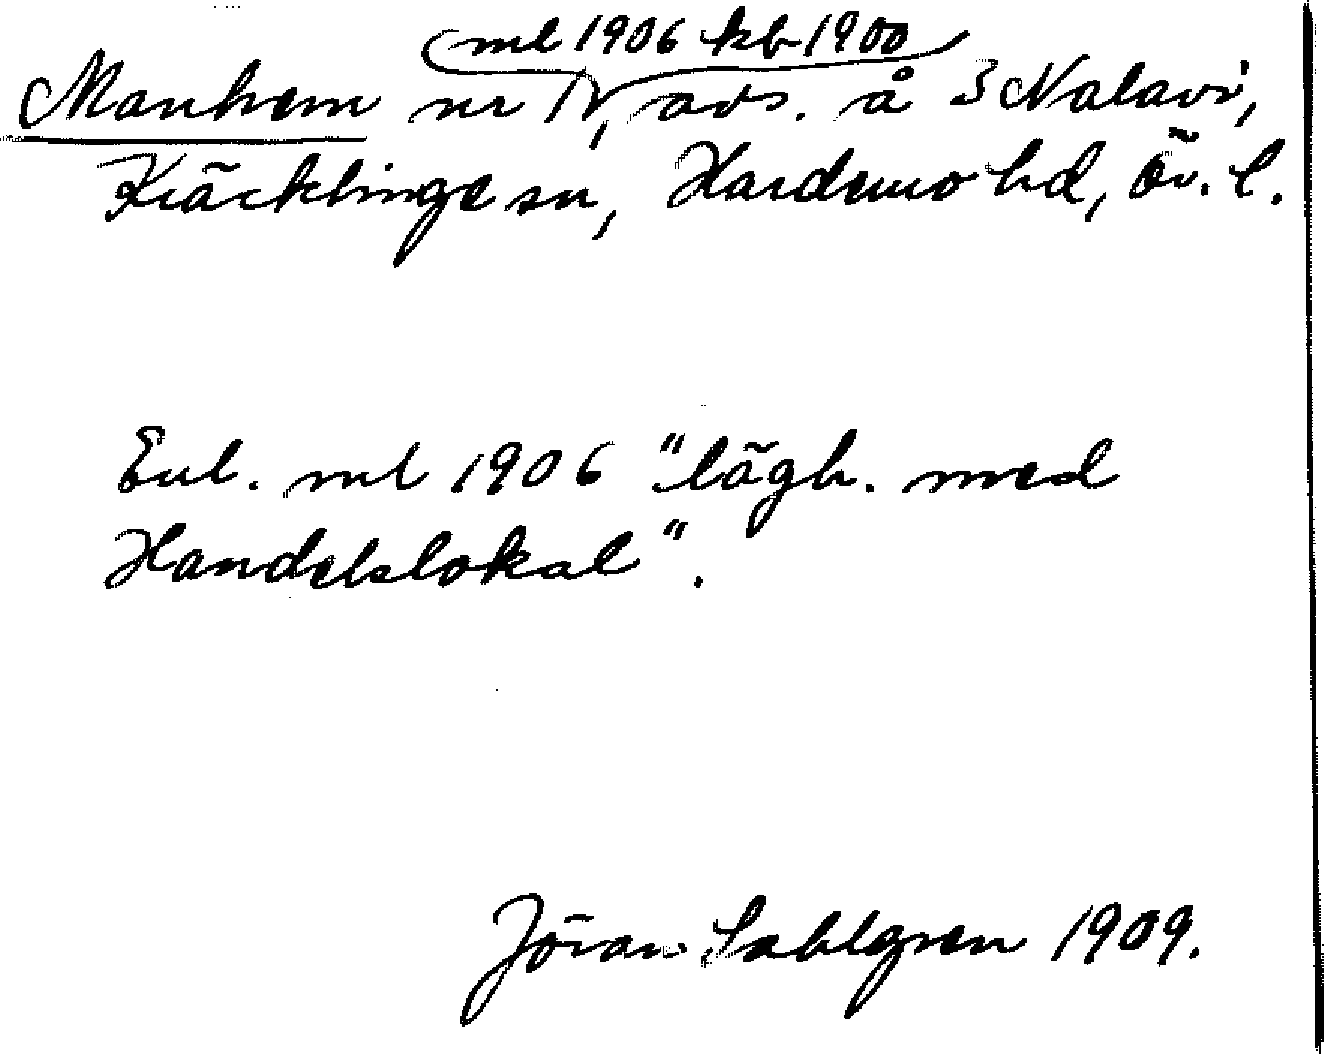 ml 1906 kb 1900
Manhem nr 1, avs. å 3 Nalavi,
Kräcklinge sn, Hardemo hd, Ör. l.
Enl. ml 1906 "lägh. med
Handelslokal".
Jöran Sahlgren 1909.